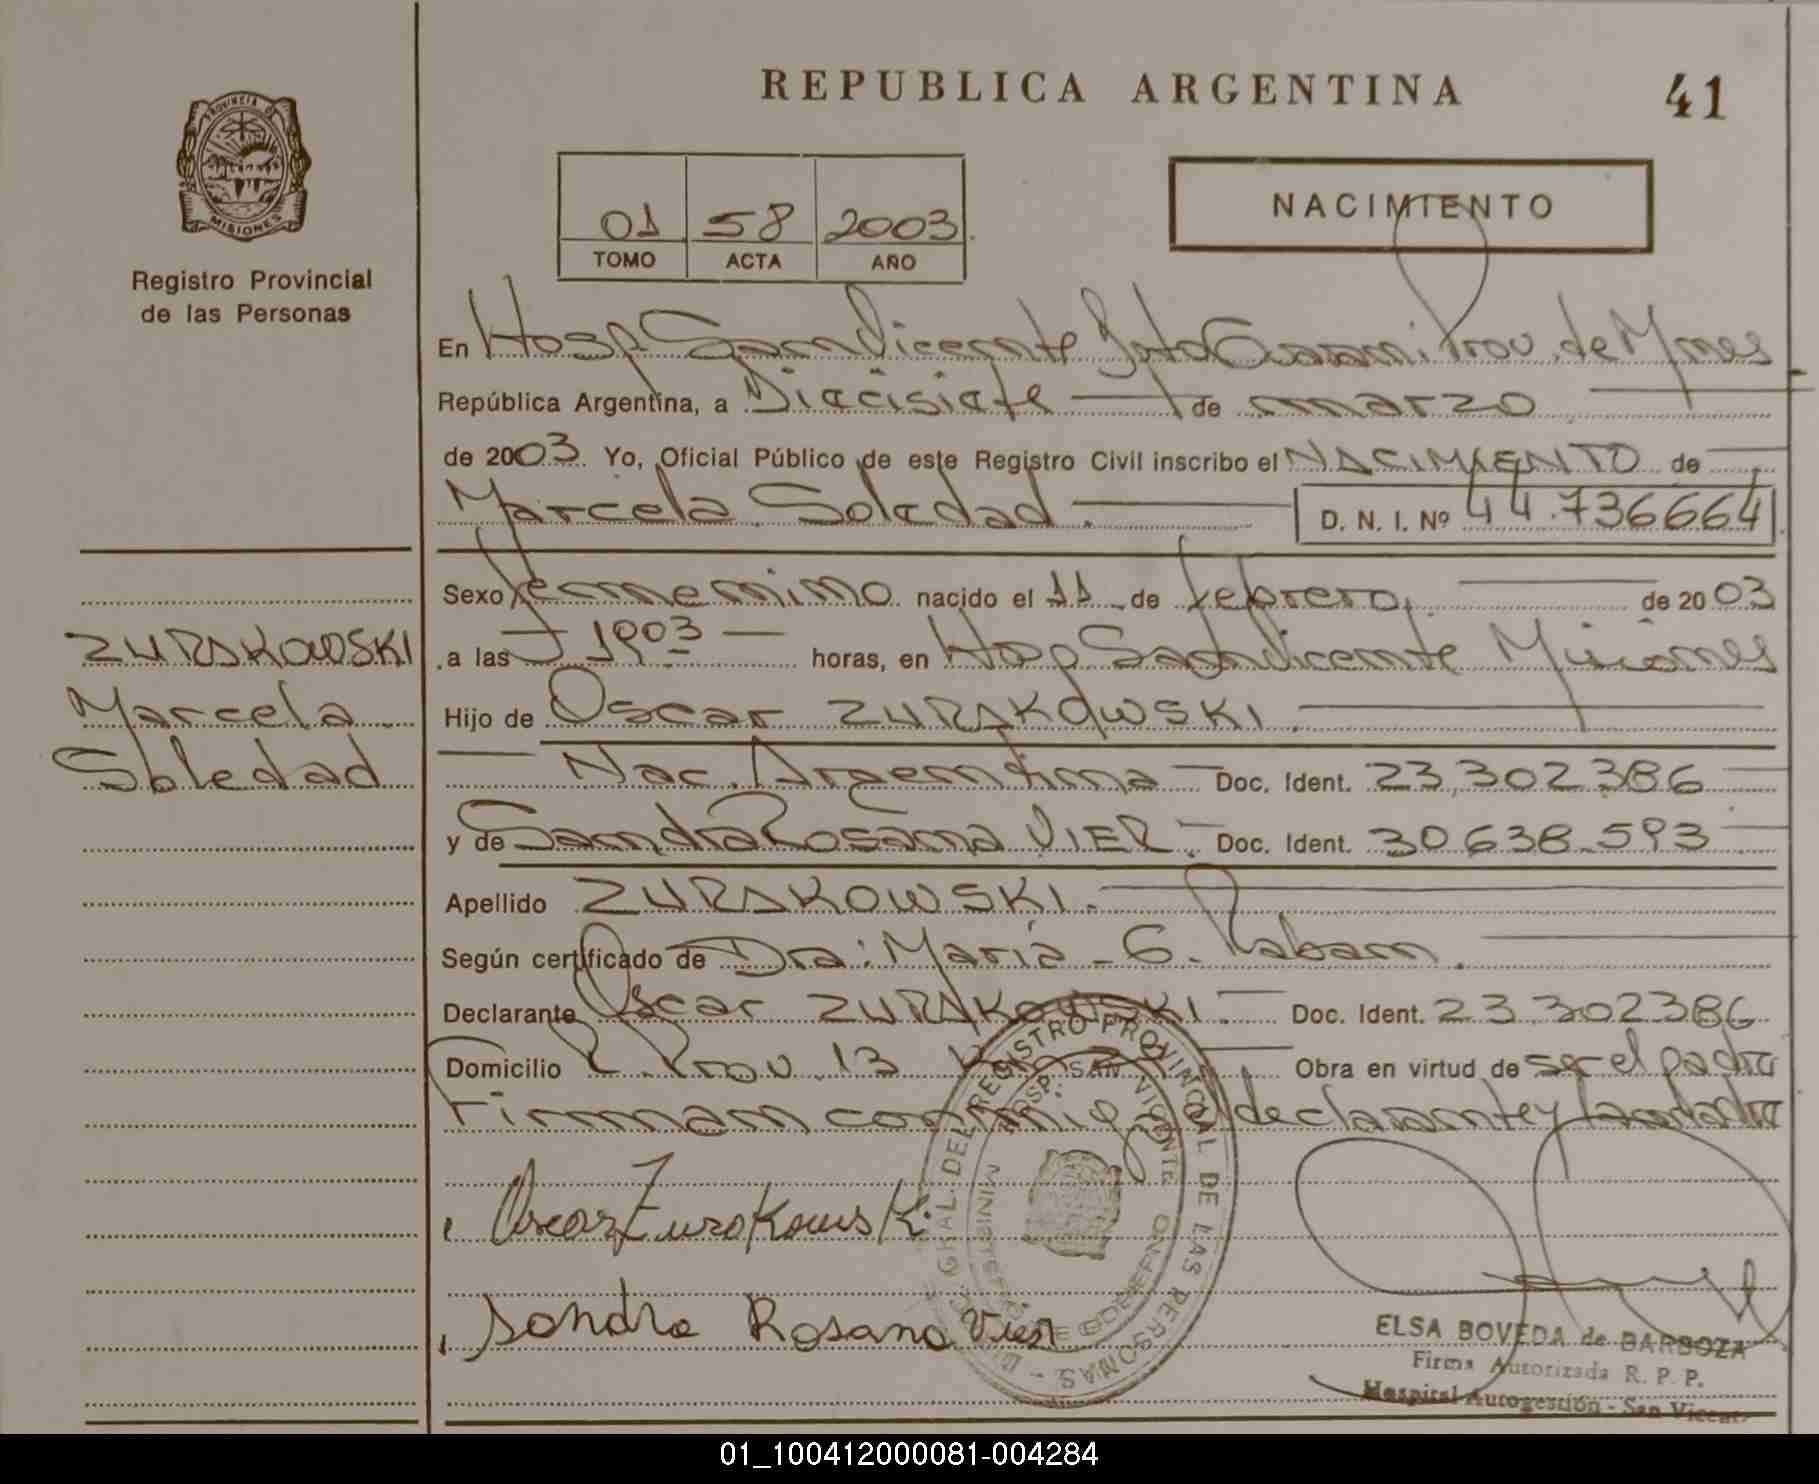 REPUBLICA ARGENTINA
41
PROVINCIA DE
MISIONES
Registro Provincial
de las Personas
01 58 2003
TOMO ACTA AÑO
NACIMIENTO
En Hosp. San Vicente Dpto Guarani Prov. de Mnes
República Argentina, a Diecisiete de marzo
de 2003 Yo, Oficial Público de este Registro Civil inscribo el NACIMIENTO de
Marcela Soledad. D. N. I. Nº 44.736664
Sexo femenino nacido el 11 de febrero, de 2003
a las 1903 horas, en Hosp San Vicente Misiones
Hijo de Oscar ZURAKOWSKI.
Nac. Argentina Doc. Ident. 23.302.386
y de Sandra Rosana VIER. Doc. Ident. 30.638.593
Apellido ZURAKOWSKI.
Según certificado de Dra: María G. Raban.
Declarante Oscar ZURAKOWSKI Doc. Ident. 23.302386
Domicilio R. Prov. 13 Obra en virtud de ser el padre
Firman conmigo el declarante y la madre
ZURAKOWSKI
Marcela
Soledad
Oscar Zurakowski
Sandra Rosana Vier
GRAL. DEL REGISTRO PROVINCIAL DE LAS PERSONAS
HOSP. SAN VICENTE
MINISTERIO DE GOBIERNO
ELSA BOVEDA de BARBOZA
Firma Autorizada R. P. P.
Hospital Autogestión - San Vicente
01_100412000081-004284